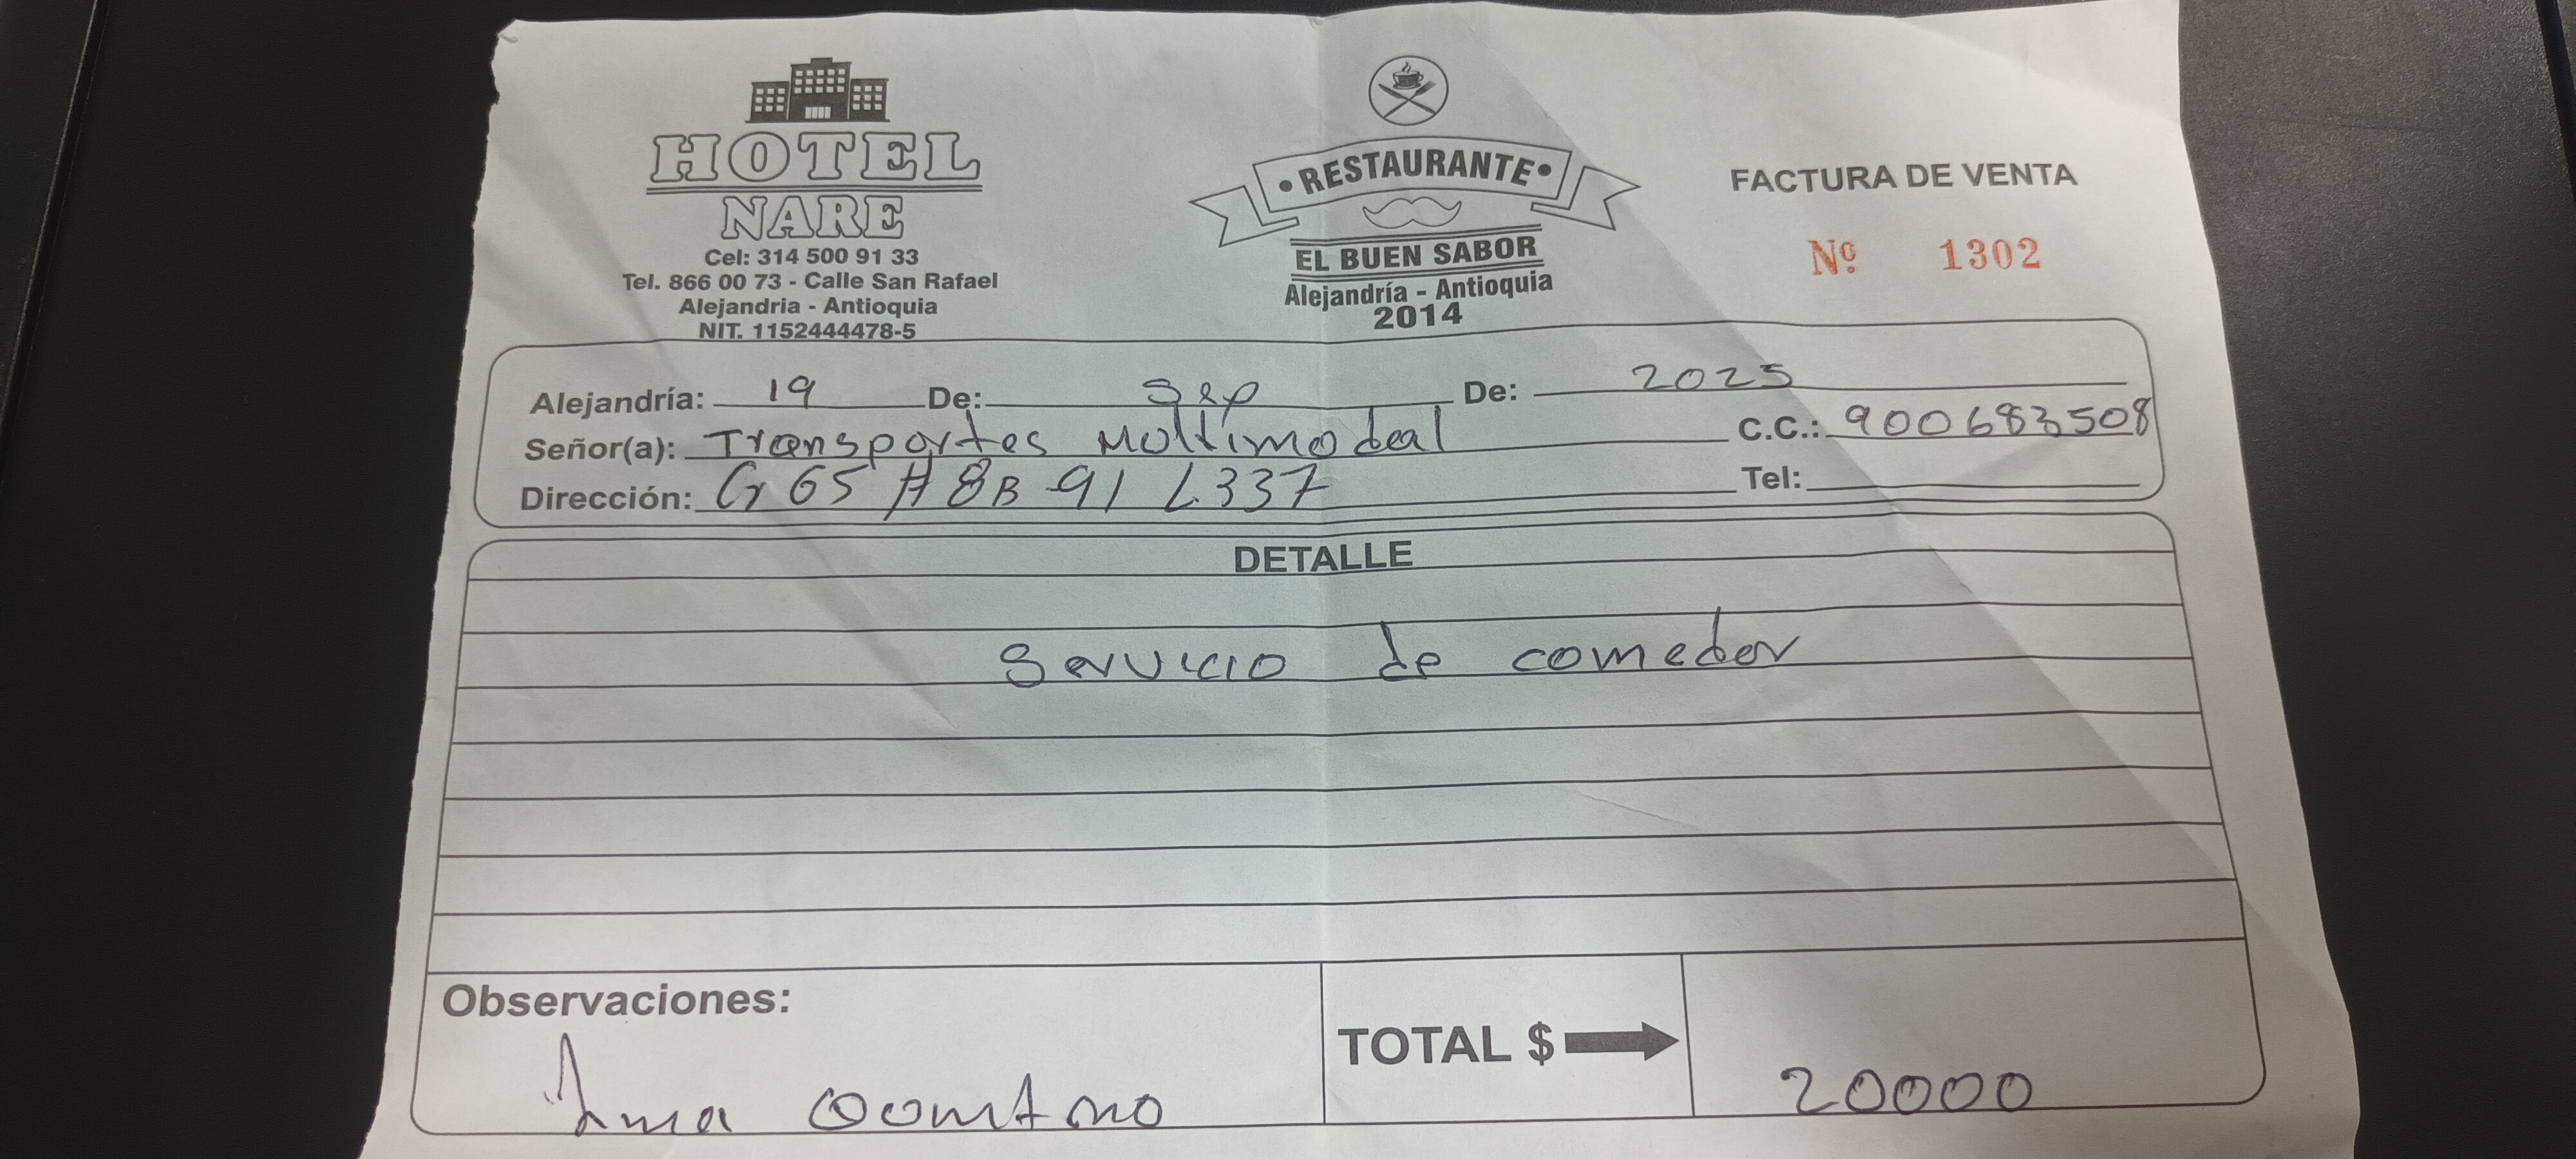 HOTEL
NARE
Cel: 314 500 91 33
Tel. 866 00 73 - Calle San Rafael
Alejandria - Antioquia
NIT. 1152444478-5
• RESTAURANTE •
EL BUEN SABOR
Alejandría - Antioquia
2014
FACTURA DE VENTA
Nº 1302
Alejandría: 19 De: Sep De: 2025
Señor(a): Transportes Moltimodeal C.C.: 900683508
Dirección: Cr 65 # 8B 91 L337 Tel:
DETALLE
Servicio de comedor
Observaciones:
TOTAL $ 20000